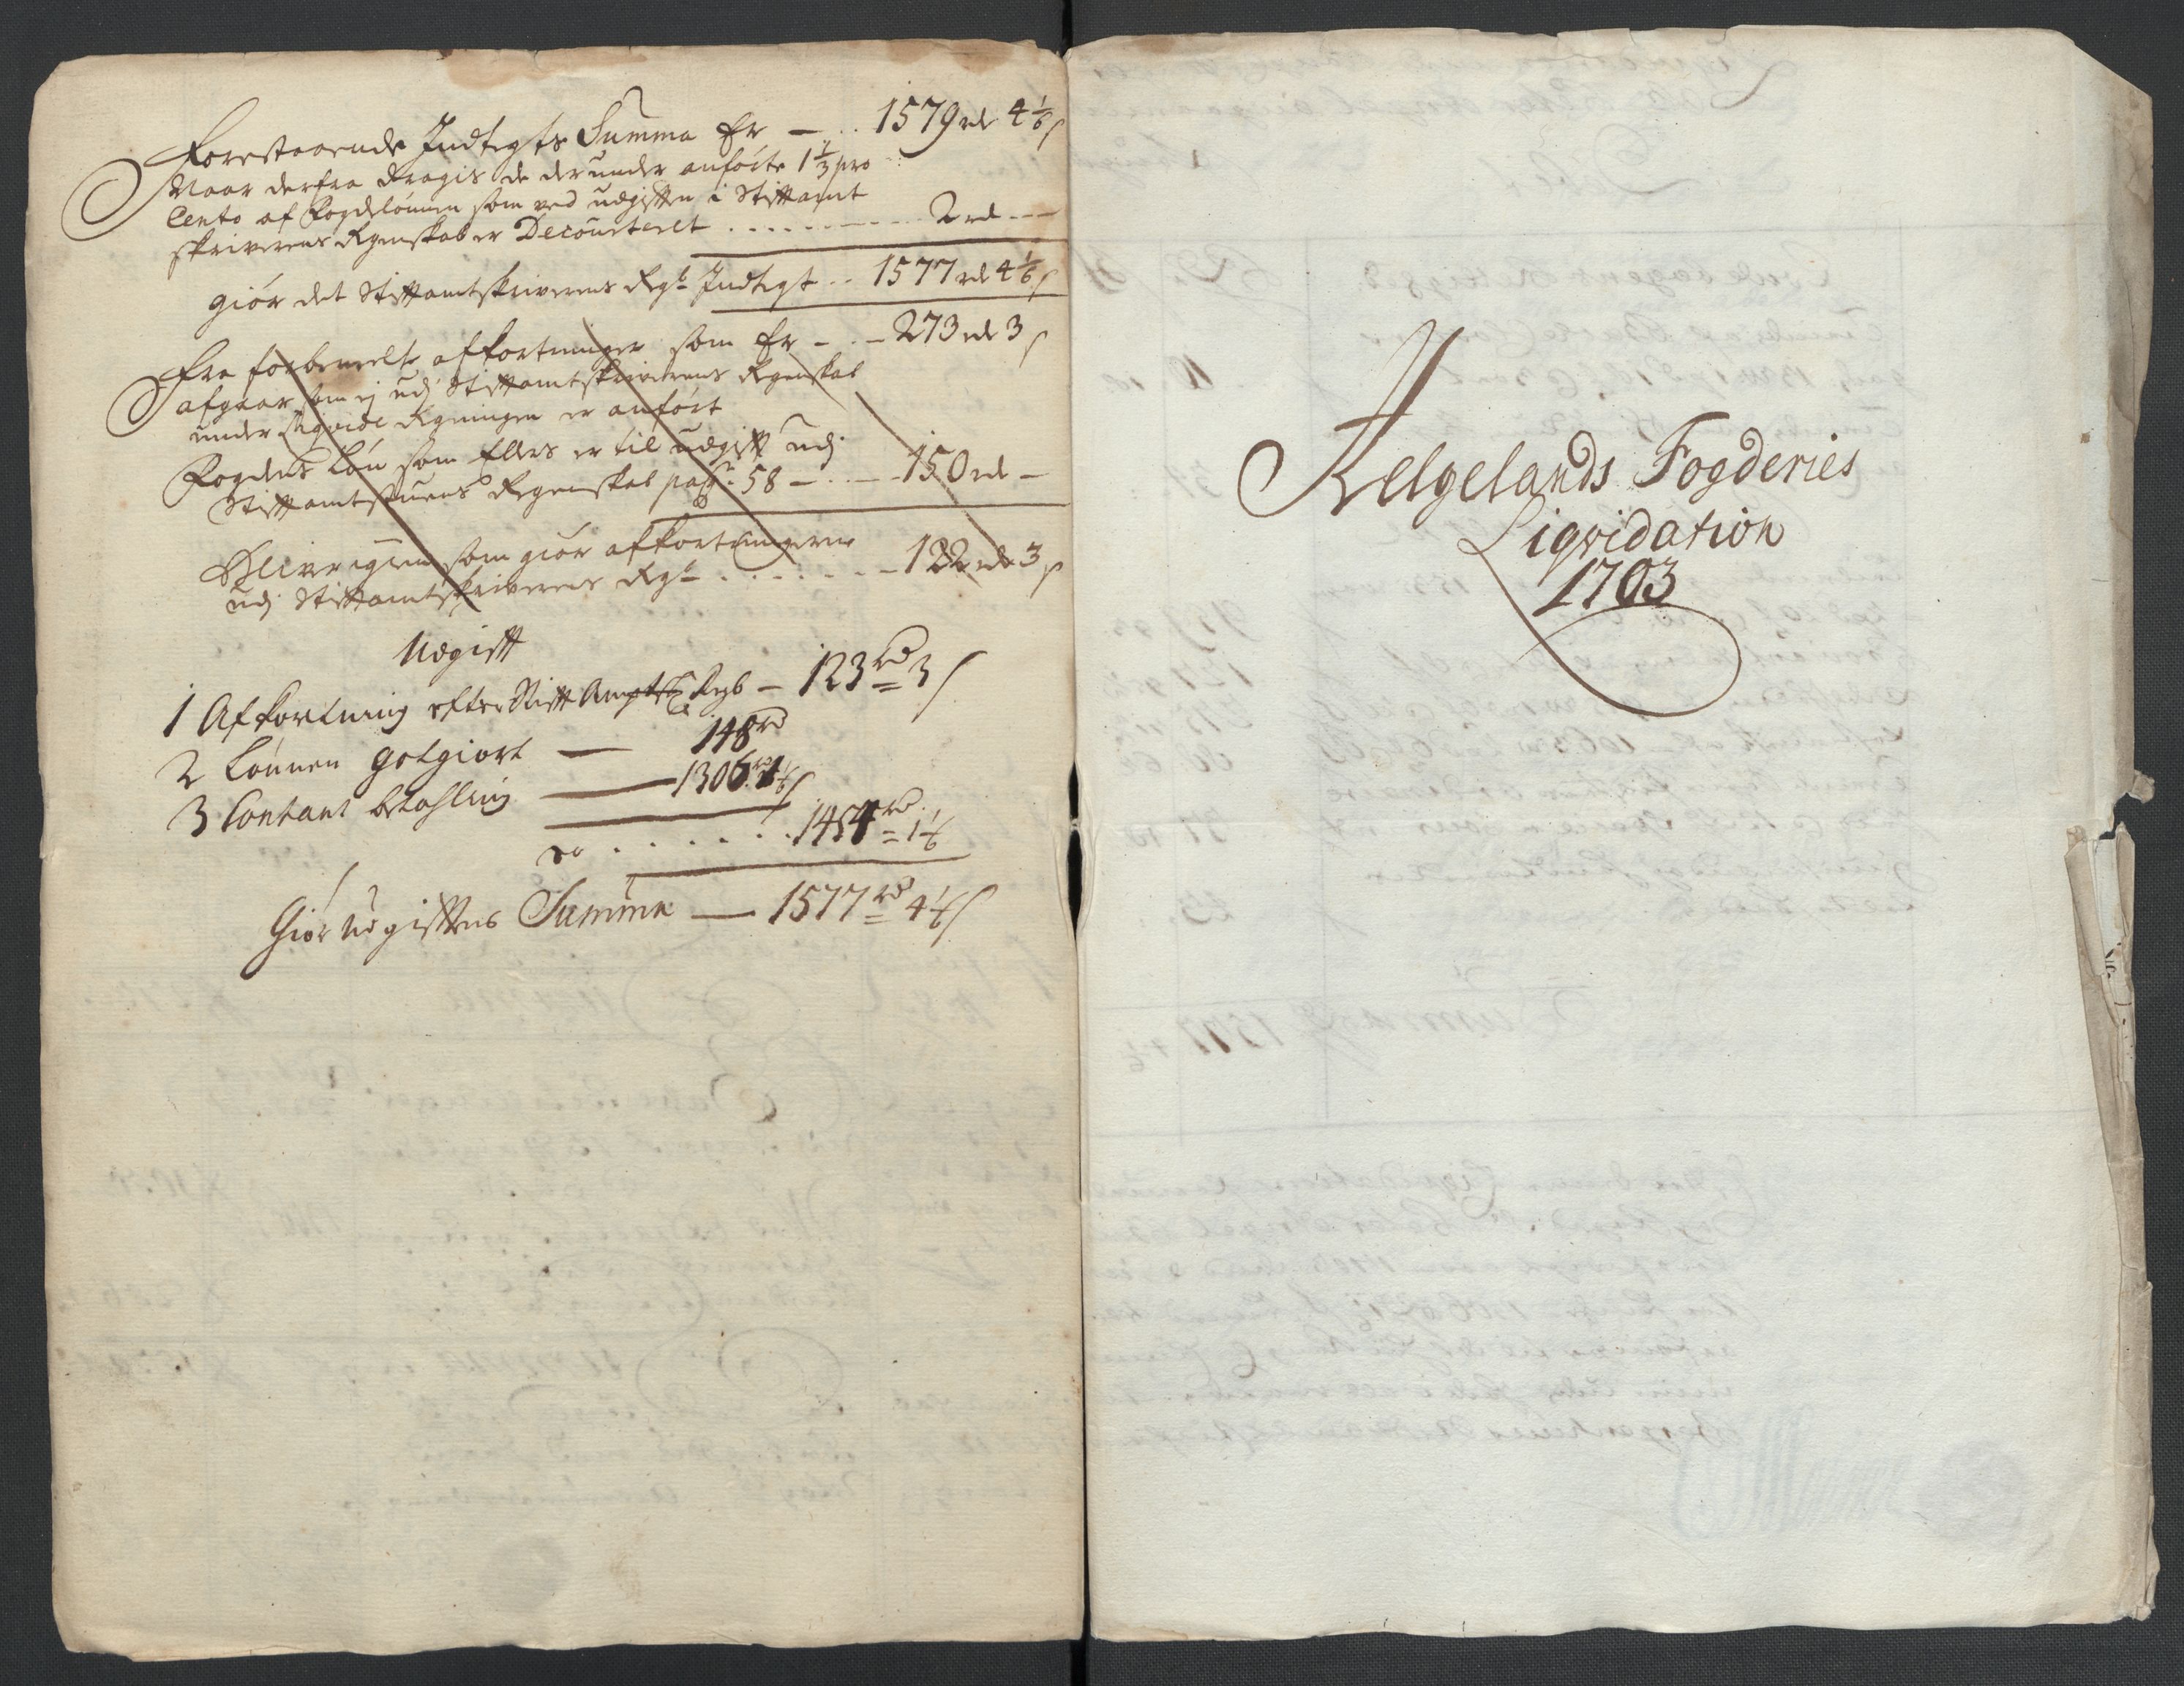 Forestaaende Indtegts Summa Er — .. 1579 rd 4 1/6 s
Naar derfra dragis de derunder anførte 1 1/3 pro
Cento af Fogdelønnen som ved udgiften i Stiftamt
skriverens Regenskab er Decourteret ........ 2 rd ---
giør det Stiftamtskriverens Regs Indtegt .. 1577 rd 4 1/6 s
Fra forbemelte afkortninger som Er - . - 273 rd 3 s
afgaar som ej udj Stiftamtskriverens Regenskab
under Liqvide Regningen er anført
Fogdens Løn som Elles er til udgift udj
Stiftamtstuens Regenskab pass: 58 — . — 150 rd —
Bliver igien som giør afkortningerne
udj Stiftamtskriverens Regs - . . . . . - 122 rd 3 s
Udgift
1 Afkortning efter Stift Amptsk Regb — 123 rd 3 s
2 Lønnen gotgiort — 148 rd
3 Contant betahling — 1306 rd 1 1/6 s
er . . . . . . 1454 rd 1 1/6
Giør Udgiftens Summa — 1577 rd 4 1/6 s
Helgelands Fogderies
Liqvidation
1703